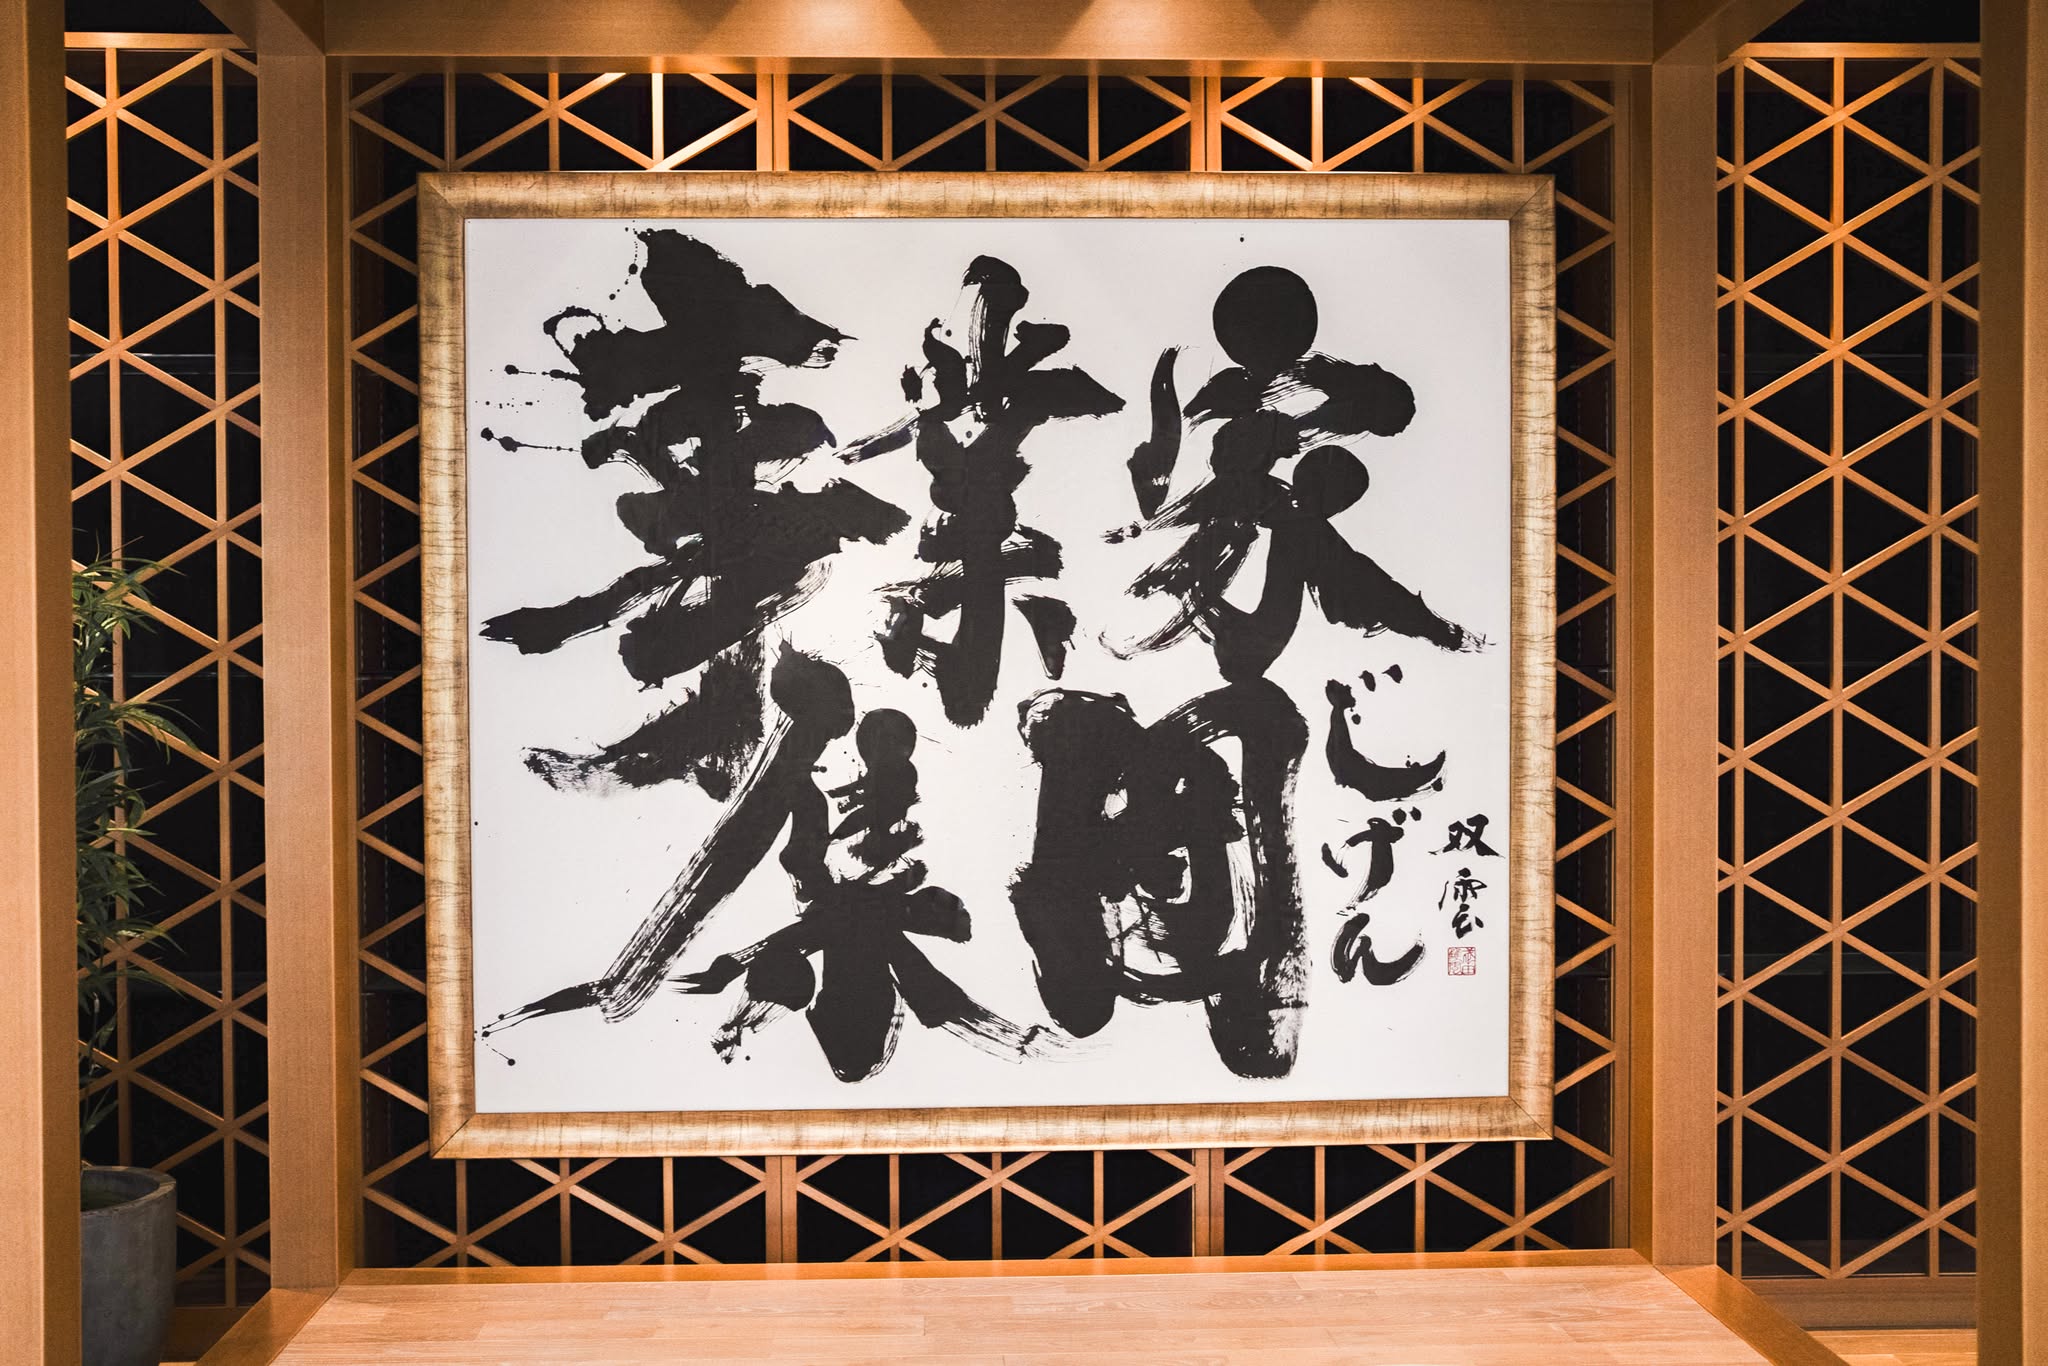 事業家
集団
じげん
双雲